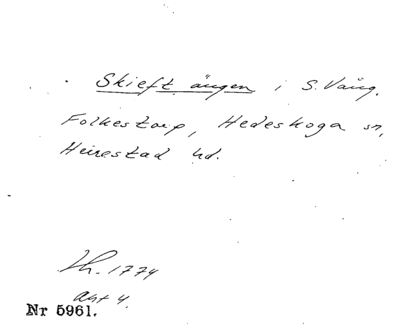 Skieft ängen i S. Vång.
Folkestorp, Hedeskoga sn,
Herrestad hd.
Lh. 1774
Akt 4.
Nr 5961.